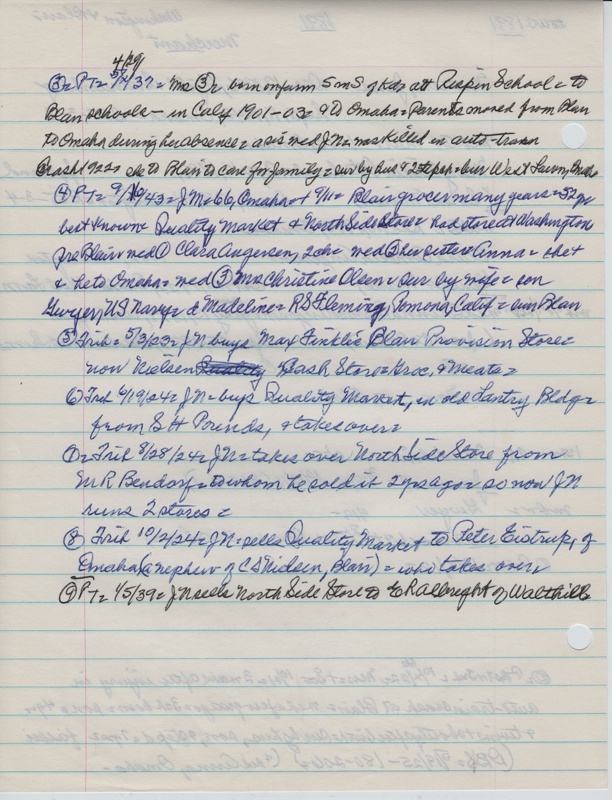 4 pg
③ = PT = 5/4/37 = Mrs ③ = born on farm 5 m S of Ka = att Respin School = to
Blair schools — in Calif 1901-03 = & to Omaha = Parents moved from Blair
to Omaha during her absence = a sis wed JN = was killed in auto-train
crash 1922 = she to Blair to care for family = sur by hus & 2 step ch = bur West Lawn, Omaha
④ PT = 9/16/43 = JN = 66, Omaha = + 9/11 = Blair grocer many years = 52 yr
best known = Quality Market & North Side Store = had store at Washington
pre Blair = wed ① Clara Anderson, 2 ch = wed ② her sister Anna = she +
& he to Omaha = wed ③ Mrs Christine Olsen = sur by wife = son
Gwyer, US Navy = d Madeline = R S Fleming, Pomona, Calif = bur Blair
⑤ Trib = 5/3/23 = JN buys Max Finkle's Blair Provision Store =
now Nielsen Cash Store = Groc, & Meats =
⑥ Trib 6/19/24 = JN = buys Quality Market, in old Lantry Bldg =
from S H Pounds, & takes over =
⑦ = Trib 8/28/24 = JN = takes over North Side Store from
M R Bendorf = to whom he sold it 2 yrs ago = so now JN
runs 2 stores =
⑧ Trib 10/2/24 = JN = sells Quality Market to Peter Eistrup, of
Omaha (a nephew of C S Nielsen, Blair) = who takes over,
⑨ PT = 1/5/39 = JN sells North Side Store to E R Allbright of Walthill